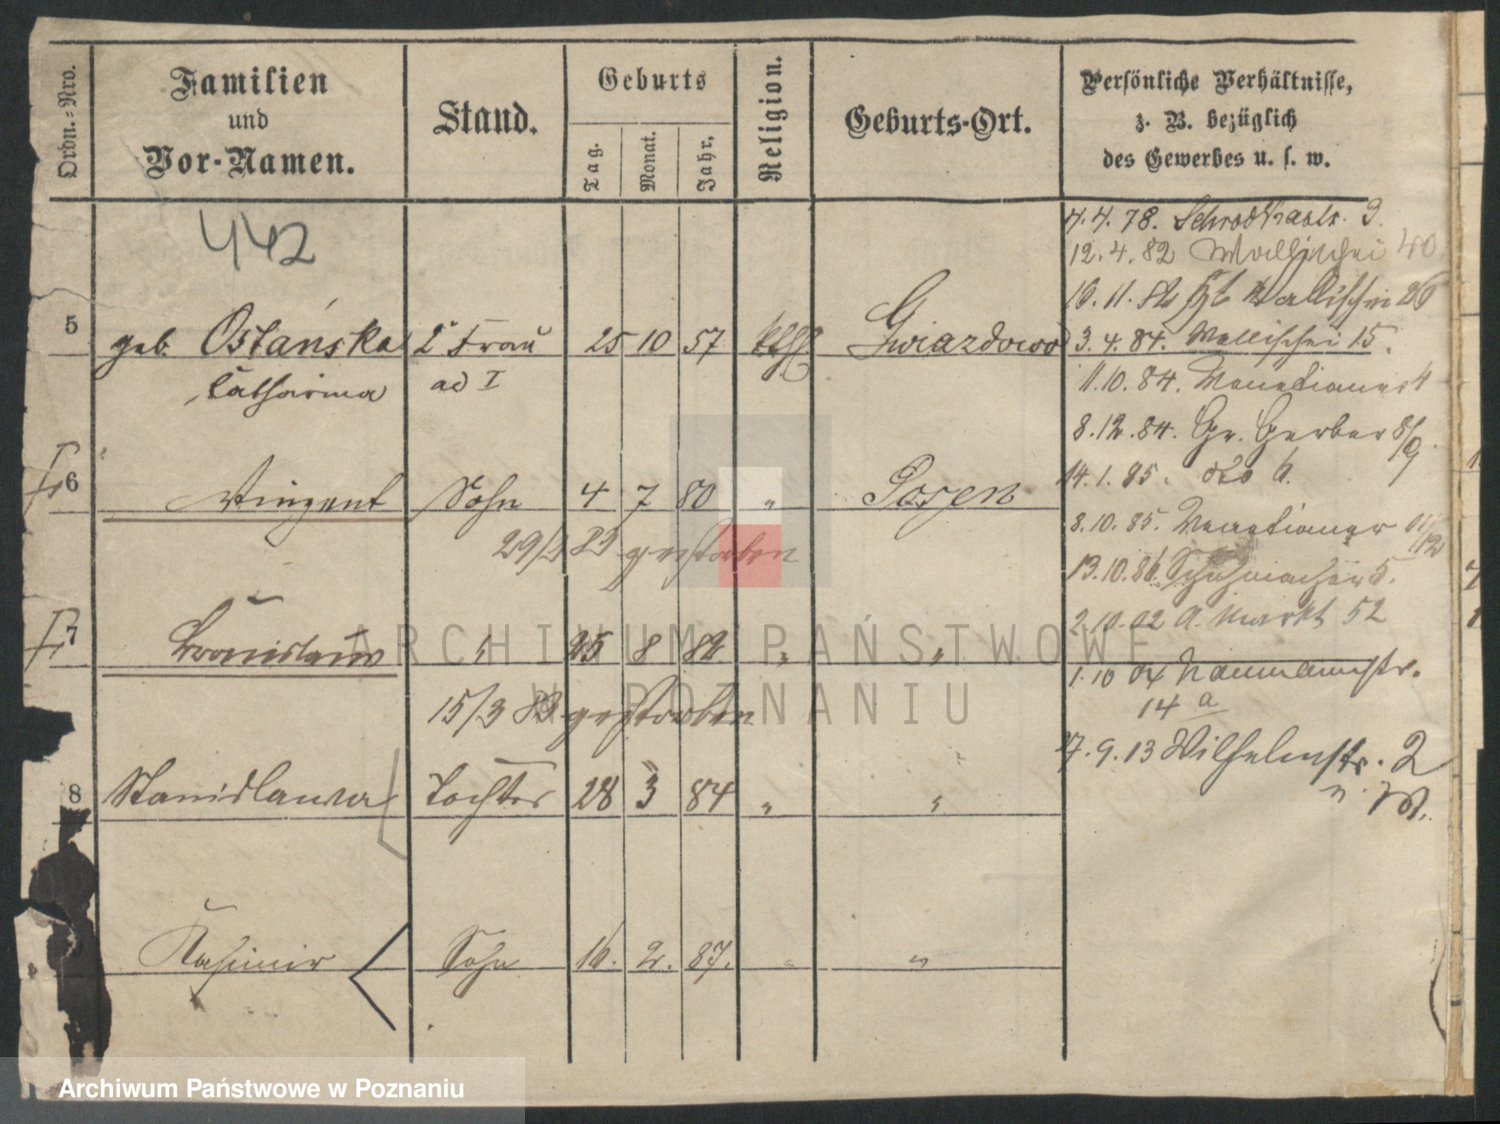 Ordn.-Nro.
Familien
und
Vor-Namen.
Stand.
Geburts
Tag.
Monat.
Jahr.
Religion.
Geburts-Ort.
Persönliche Verhältnisse,
z. B. bezüglich
des Gewerbes u. s. w.
442
5 geb. Ostańska 2te Frau 25 10 57 kth Gwiazdowo
Catharina ad I
6 Vinzent Sohn 4 7 80 " Posen
gestorben
7 Bronislaus " 25 8 82 " "
15/3 83 gestorben
8 Stanislawa Tochter 28 3 84 " "
Kasimir Sohn 16. 2. 87. " "
4.4.78. 3.
12.4.82 Wallischei 40
16.11.82 Wallischei 26
3.4.84. Wallischei 15.
11.10.84. Venetianer 4
8.12.84. Gr. Gerber 8/9.
14.1.85. dto 6.
8.10.85. Venetianer 11/12
13.10.86. Schuhmacher 5.
2.10.02 A. Markt 52
1.10 04 Naumannstr.
14 a
9.13 Wilhelmstr. 2
ARCHIWUM PAŃSTWOWE
W POZNANIU
Archiwum Państwowe w Poznaniu